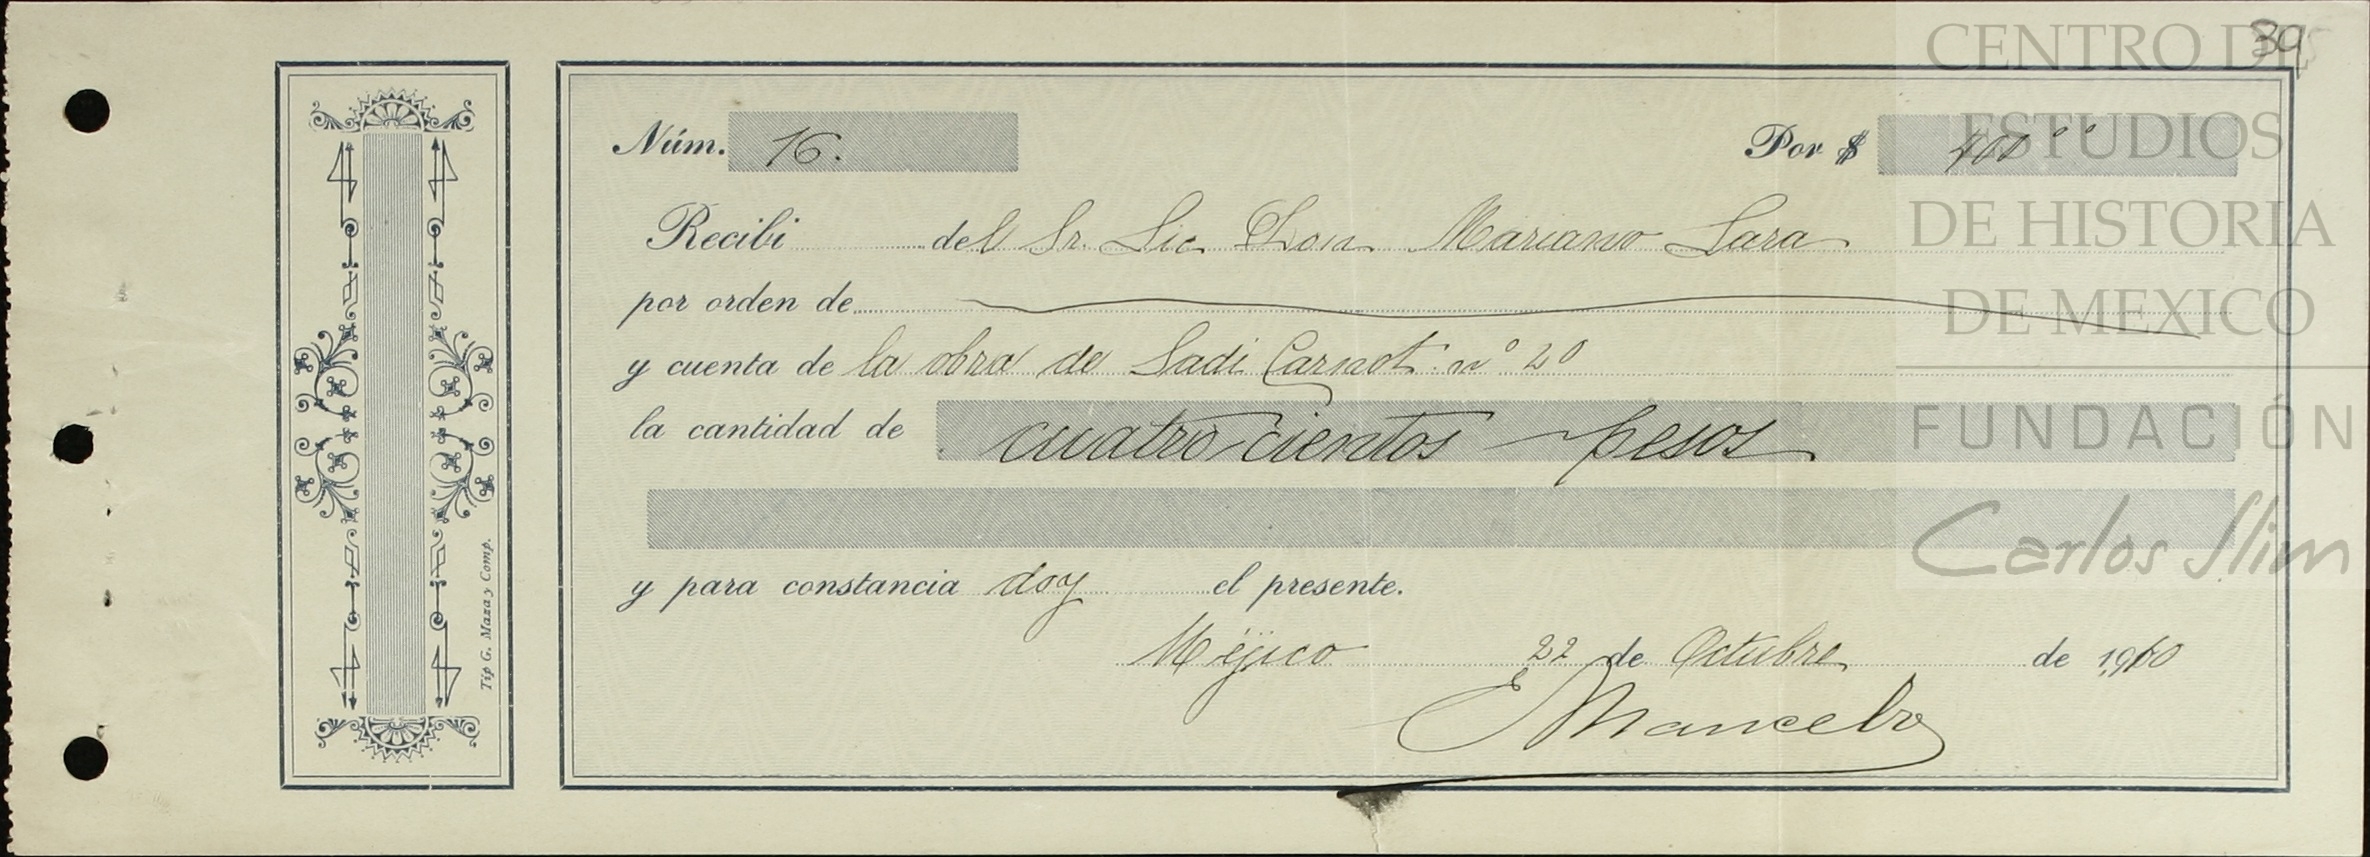 39
CENTRO DE
ESTUDIOS
DE HISTORIA
DE MEXICO
FUNDACIÓN
Carlos Slim
Núm. 16. Por $ 400 °°
Recibí del Sr. Lic Don Mariano Lara
por orden de
y cuenta de la obra de Sadi Carnot. nº 20
la cantidad de cuatro cientos pesos
y para constancia doy el presente.
Méjico 22 de Octubre de 1910
E Mancebo
Tip G. Maza y Comp.